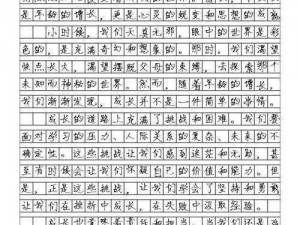 是年龄的增长，更是心灵的蜕变和思想的成熟
小时候，我们天真无邪，眼中的世界是彩
色的，是充满奇幻和想象的。那时，我们渴望
快点长大，渴望摆脱父母的束缚，去探索那个
未知而神秘的世界。然而，随着年龄的增长，
我们渐渐发现，成长并不是一件简单的事情。
成长的道路上充满了挑战和困难。我们要
面对学习的压力、人际关系的复杂、未来的不
确定性。这些挑战让我们感到迷茫和无助，甚
至有时候会让我们怀疑自己的价值和能力。但
是，正是这些挑战，让我们学会了坚持和勇敢
让我们在挫折中成长，在失败中汲取经验。
成长也意味着责任和担当。当我们还是